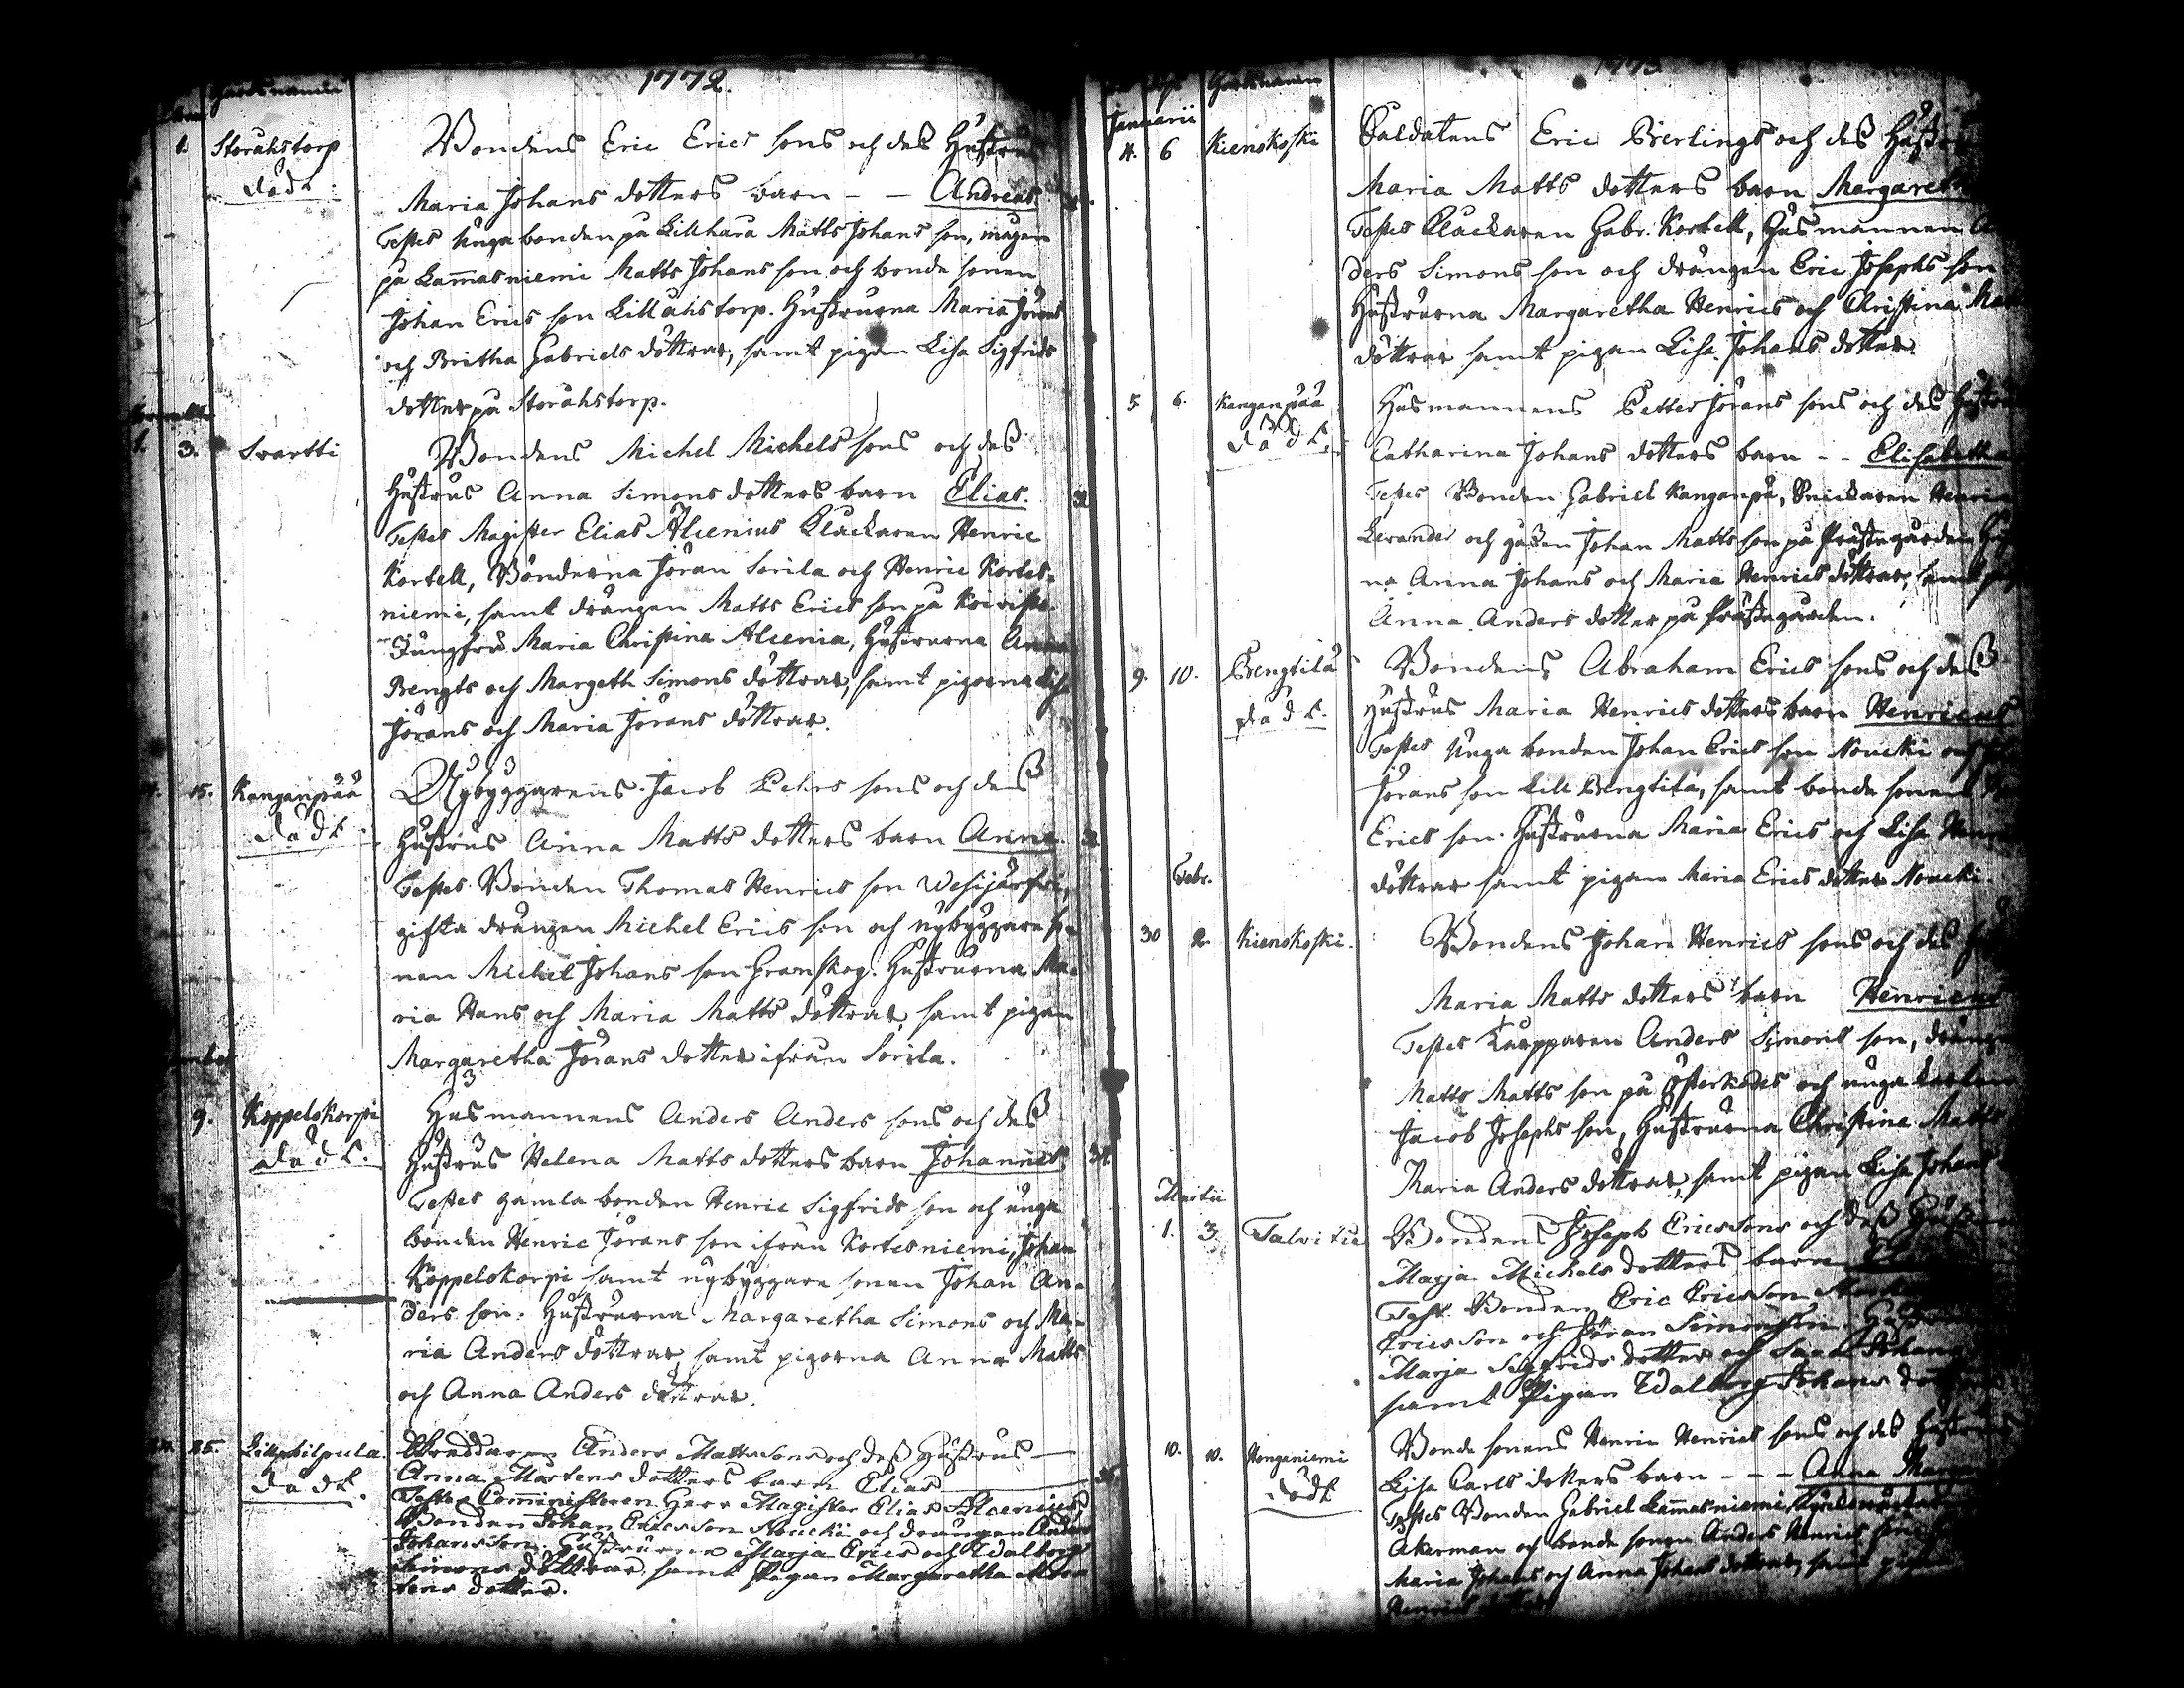 1772.
Gårdsnamn
1. Storåhstorp
död.
Bondens Eric Erics sons och des Hustrus
Maria Johans dotters barn - - Andreas.
Testes Unga bonden på Lillhara Matts Johans son, mågen
på Lam̄asniemi Matts Johans son och bonde sonen
Johan Erics son Lillåhstorp. Hustrurna Maria Jörans
och Britha Gabriels döttrar, samt pigan Lisa Sigfrids
dotter på Storåhstorp.
1. 3. Svartti
Bondens Michel Michels sons och des
Hustrus Anna Simons dotters barn Elias.
Testes Magister Elias Alcenius Klåckaren Henric
Kortell, Bönderna Jöran Sorila och Henric Kortes-
niemi, samt drängen Matts Erics son på
Jungfru Maria Christina Alcenia, Hustrurna Anna
Bengts och Margeth Simons döttrar, samt pigorna Lisa
Jörans och Maria Jörans döttrar.
15. Kanganpää
död.
Nybyggarens Jacob Pehrs sons och des
Hustrus Anna Matts dotters barn Anna.
Testes Bonden Thomas Henrics son Wesijärfvi,
gifta drängen Michel Erics son och nybyggare so-
nen Michel Johans son Granskog. Hustrurna Ma-
ria Hans och Maria Matts döttrar, samt pigan
Margaretha Jörans dotter ifrån Sorila.
9. Koppelokorpi
död.
Husmannens Anders Anders sons och des
Hustrus Helena Matts dotters barn Johannes
Testes gamla bonden Henric Sigfrids son och unga
bonden Henric Jörans son ifrån Kortesniemi, Johan
Koppelokorpi samt nybyggare sonen Johan An-
ders son. Hustrurna Margaretha Simons och Ma-
ria Anders döttrar, samt pigorna Anna Matts
och Anna Anders döttrar.
25.
död.
Anders Mattssons och dess Hustrus
Anna Mårtens dotters barn Elias
Testes Com̄inisteren Herr Magister Elias Alcenius
Bonden Johan Ericsson Noucki och drängen Anders
Johansson. Hustrurna Marja Erics och Walborg
Simons döttrar samt Pigan Margaretha Mår-
tens dotter.
1773
Gårdsnamn
Januarii
4. 6 Kienokoski
Saldatens Eric Bierlings och des Hustrus
Maria Matts dotters barn Margaretha
Testes Klåckaren Gabr. Kortell, Husmannen An
ders Simons son och drängen Eric Josephs son
Hustrurna Margaretha Henrics och Christina Matts
döttrar samt pigan Lisa Johans dotter.
5 6. Kanganpää
död.
Husmannens Petter Jörans sons och des Hustrus
Catharina Johans dotters barn - - Elisabetha
Testes Bonden Gabriel Kanganpä, Snickaren Henric
Levander och gåssen Johan Matts son på Prästegården
na Anna Johans och Maria Henrics döttrar, samt
Anna Anders dotter på Prästegården.
9. 10. Bengtilä
död.
Bondens Abraham Erics sons och des
Hustrus Maria Henrics dotters barn Henricus
Testes Unga bonden Johan Erics son Noucki och
Jörans son Lill Bengtilä, samt bonde sonen
Erics son. Hustrurna Maria Erics och Lisa
döttrar samt pigan Maria Erics dotter Noucki.
Febr.
30 2. Kienokoski.
Bondens Johan Henrics sons och des
Maria Matts dotters barn Henricus
Testes Knapparen Anders Simons son, drängen
Matts Matts son på Österkodis och unga bonden
Jacob Josephs son, Hustrurna Christina Matts
Maria Anders döttrar, samt pigan Lisa Johans
Martii
1. 3. Talvitie
Bondens Joseph Ericssons och dess Hustrus
Marja Michels dotters barn
Test. Bonden Eric Ericsson
Ericsson och Jöran Simonsson.
Marja Sigfrids dotter och
samt Pigan Walborg Johans
10. 10. Honganiemi
död
Bonde sonens Henric Henrics sons och des Hustrus
Lisa Carls dotters barn - - - Anna
Testes Bonden Gabriel Lam̄asniemi,
Åkerman och bonde sonen Anders Henrics son
Maria Johans och Anna Johans döttrar, samt pigan